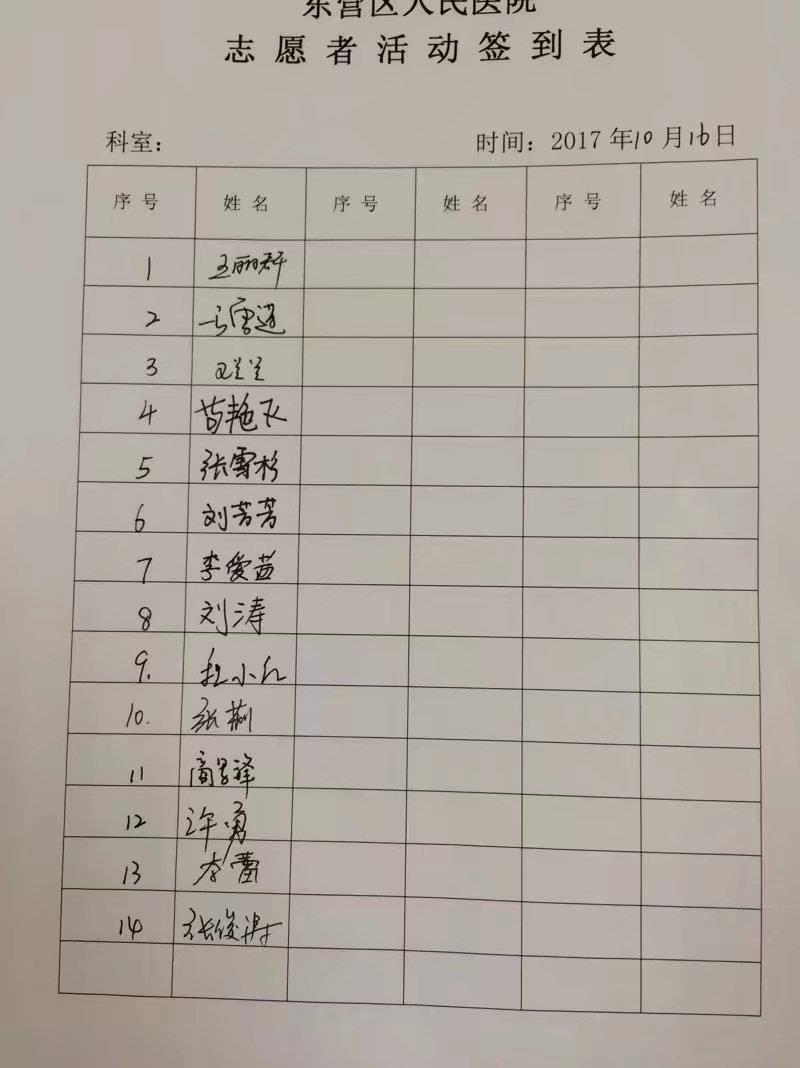 东营区人民医院
志愿者活动签到表
科室： 时间：2017年10月16日
序号 姓名 序号 姓名 序号 姓名
1 王丽群
2 马雪莲
3 兰兰
4 苗艳飞
5 张雪杉
6 刘芳芳
7 李爱茜
8 刘涛
9. 小红
10. 张荆
11
12 许勇
13 李蕾
14 张俊